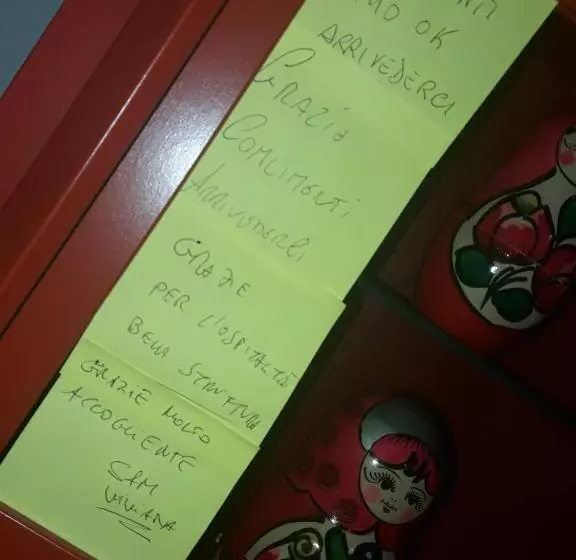 MO OK
ARRIVEDERCI
GRAZIE
COMLIMENTI
ARRIVEDERCI
GRAZIE
PER L'OSPITALITÀ
BELLA STRUTTURA
GRAZIE MOLTO
ACCOGLIENTE